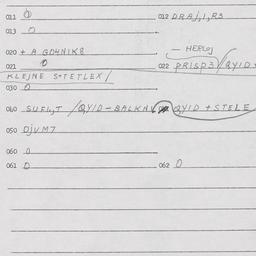 011 0 012 DRAJ,1,R3
013 0
020 + A GO4NIK8 — HEPLEJ
021 0 022 PRISP3/QYID+
KLEJNE S+ETLEX/
030 0
040 SUFL,T /QYID-BALKAN QYID + STELE
050 DJVM7
060 0
061 0 062 0